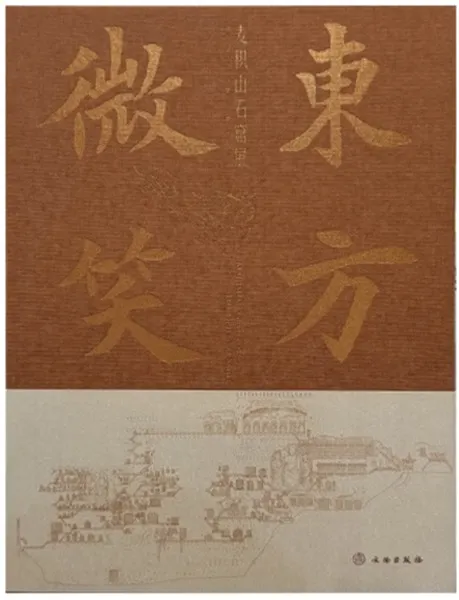 東方
微笑
麦积山石窟
文物出版社